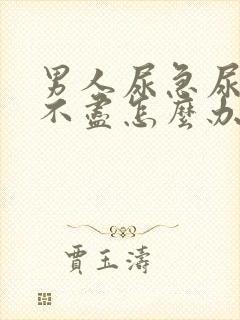 男人尿急尿
不盡怎麼办
賈玉濤